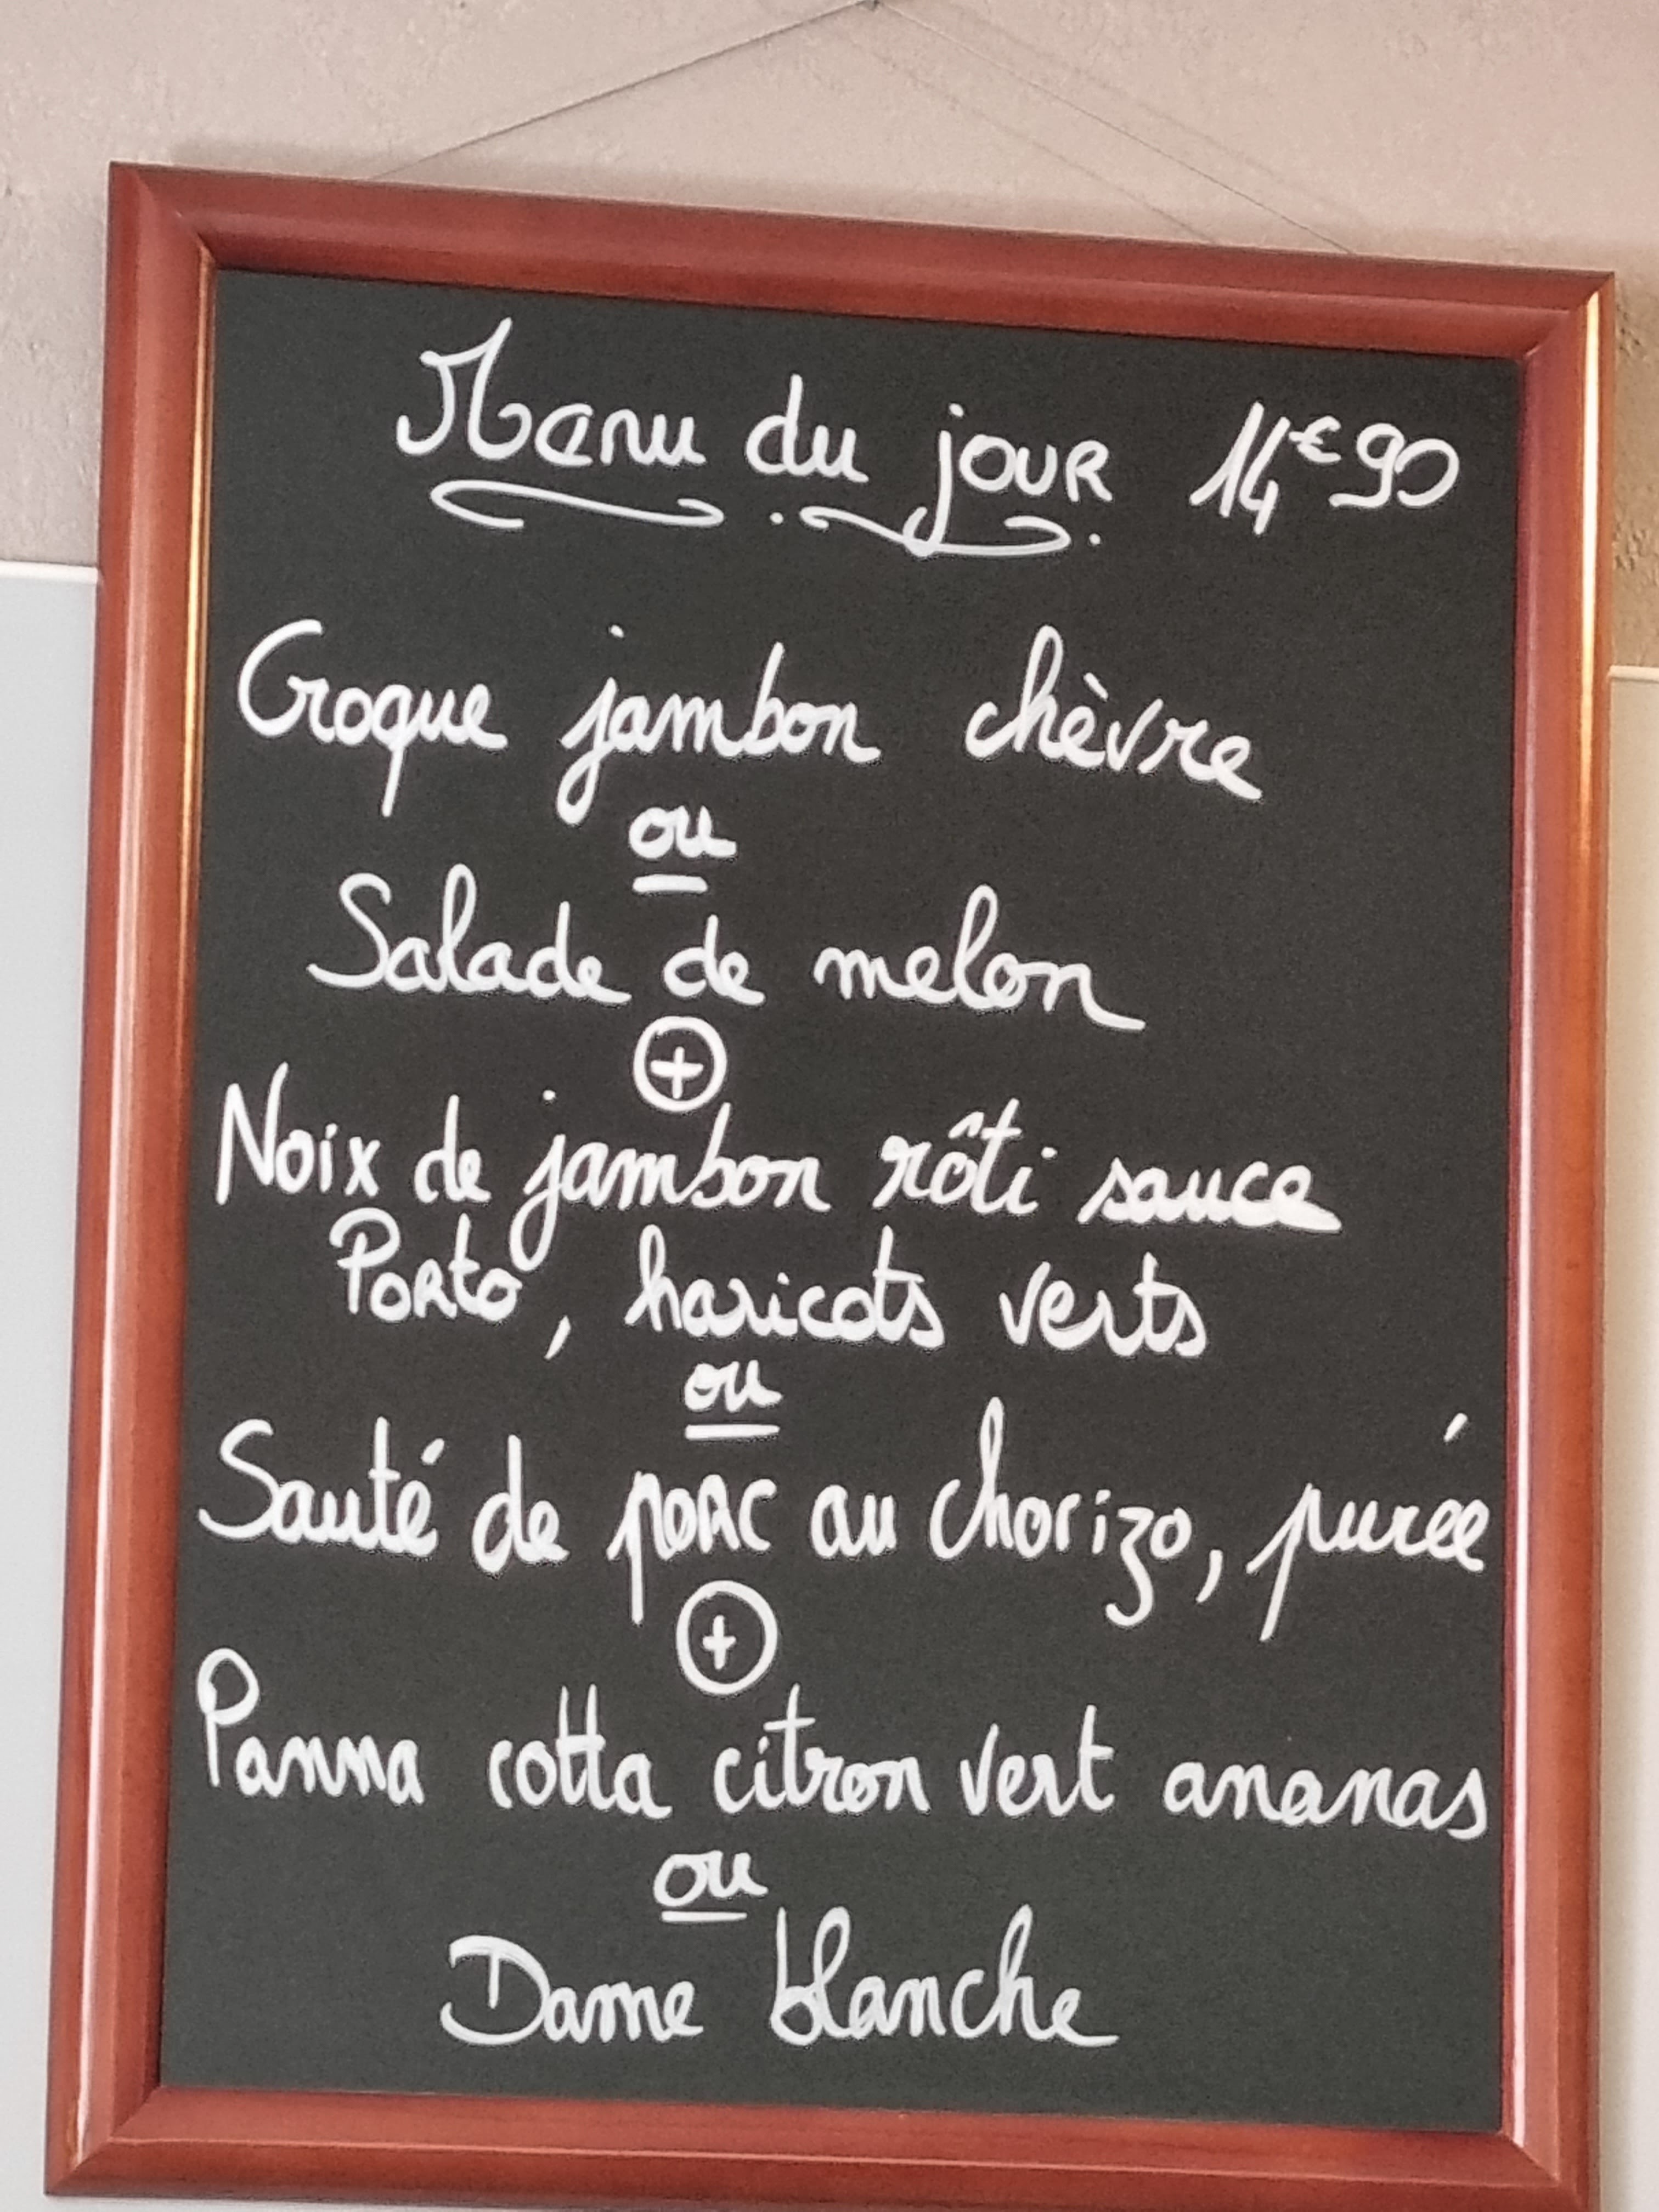 Menu du jour 14€90
Croque jambon chèvre
ou
Salade de melon
+
Noix de jambon rôti sauce
Porto, haricots verts
ou
Sauté de porc au chorizo, purée
+
Panna cotta citron vert ananas
ou
Dame blanche